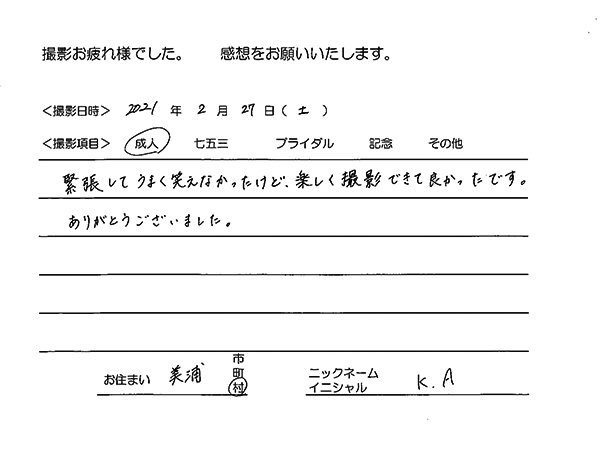 撮影お疲れ様でした。 感想をお願いいたします。
<撮影日時> 2021 年 2 月 27 日 ( 土 )
<撮影項目> 成人 七五三 ブライダル 記念 その他
緊張してうまく笑えなかったけど、楽しく撮影できて良かったです。
ありがとうございました。
お住まい 美浦 市 町 村
ニックネーム イニシャル K.A